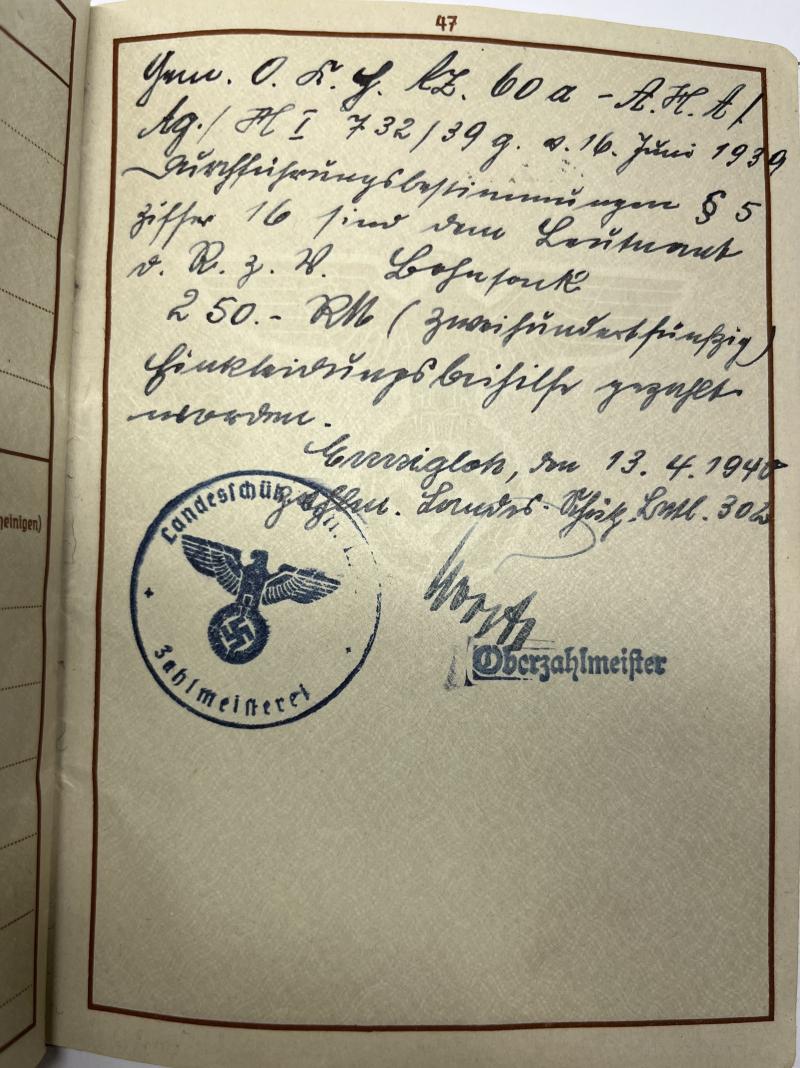 47
Gem. O. K. H. AZ. 60 a - A.H.A/
Ag./ H I 732/39 g. v. 16. Juni 1939
Durchführungsbestimmungen § 5
Ziffer 16 sind dem Leutnant
d. R. z. V.
250.- RM (zweihundertfünfzig)
Einkleidungsbeihilfe gezahlt
worden.
den 13.4.1940
Zahlm. Landes-Schütz. Batl. 302
Landesschütz
Zahlmeisterei
Oberzahlmeister
heinigen)